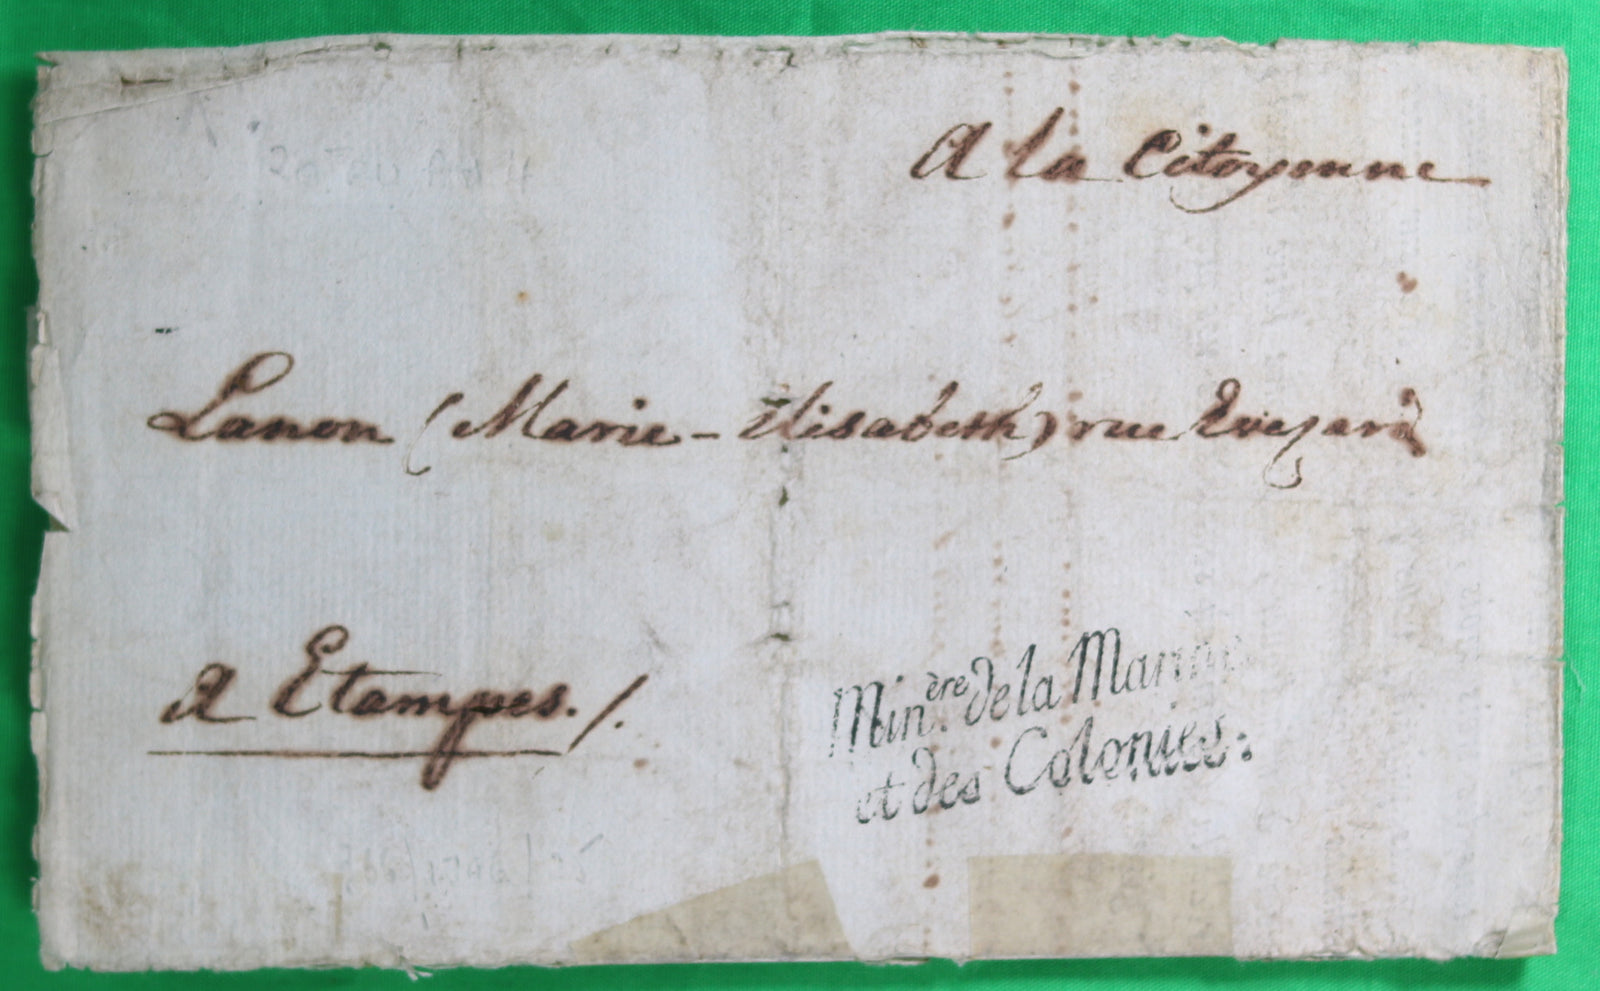 A la Citoyenne
Lanon (Marie-Elisabeth) rue Evezard
A Etampes./.
Min.ère de la Marine
et des Colonies.